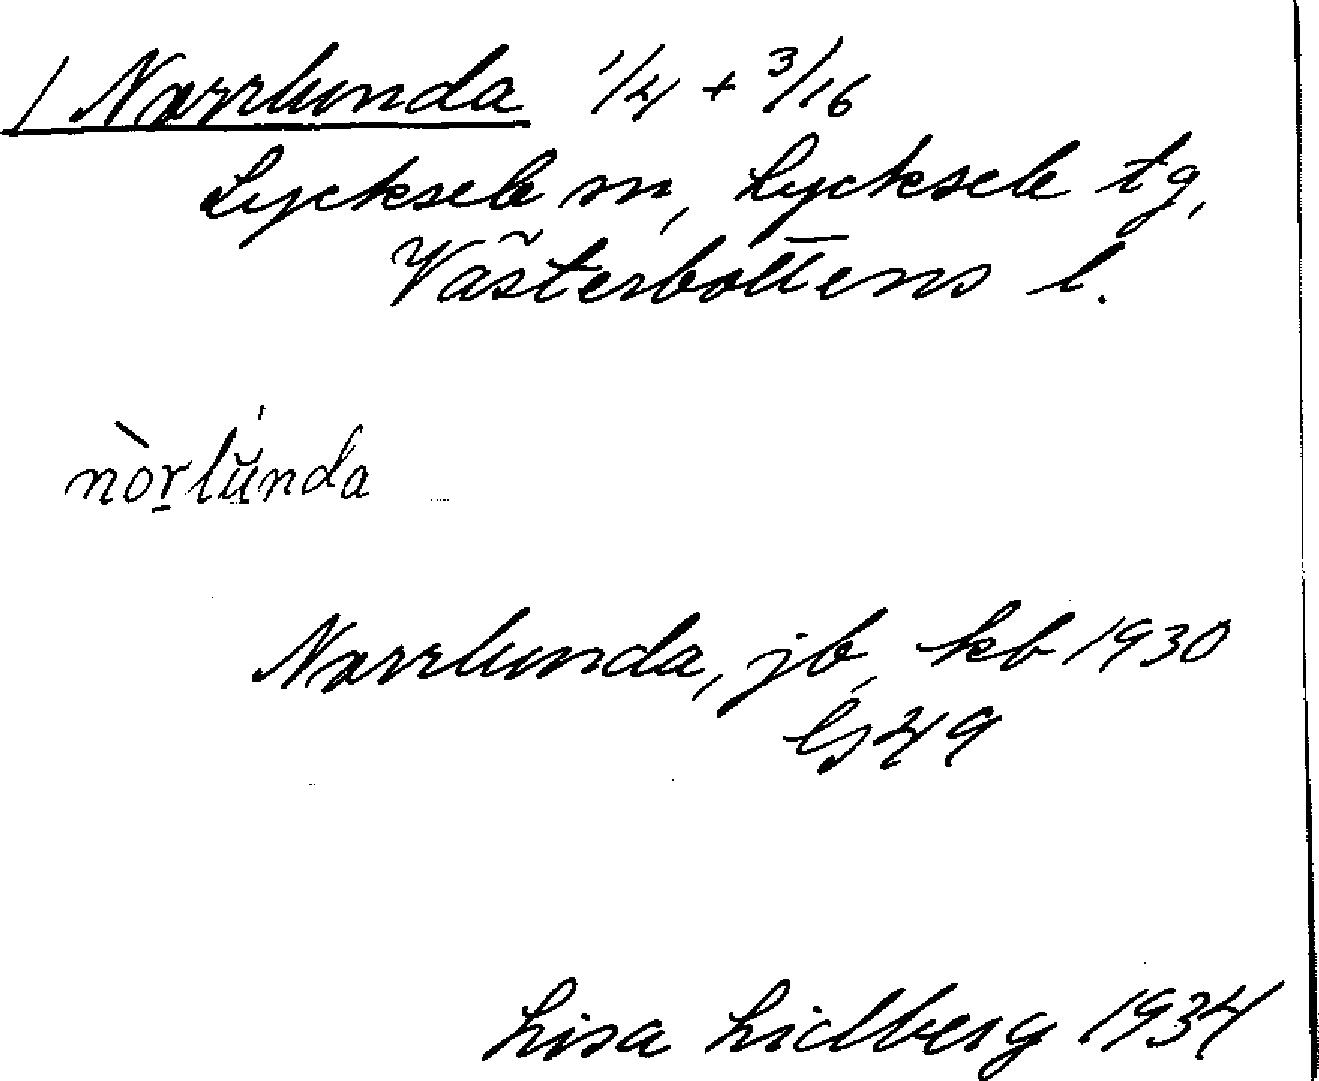 / Norrlunda 1/4 + 3/16
Lycksele sn, Lycksele tg,
Västerbottens l.
nòrlŭnda
Norrlunda, jb, kb 1930
Gs 49
Lisa Lidberg 1934